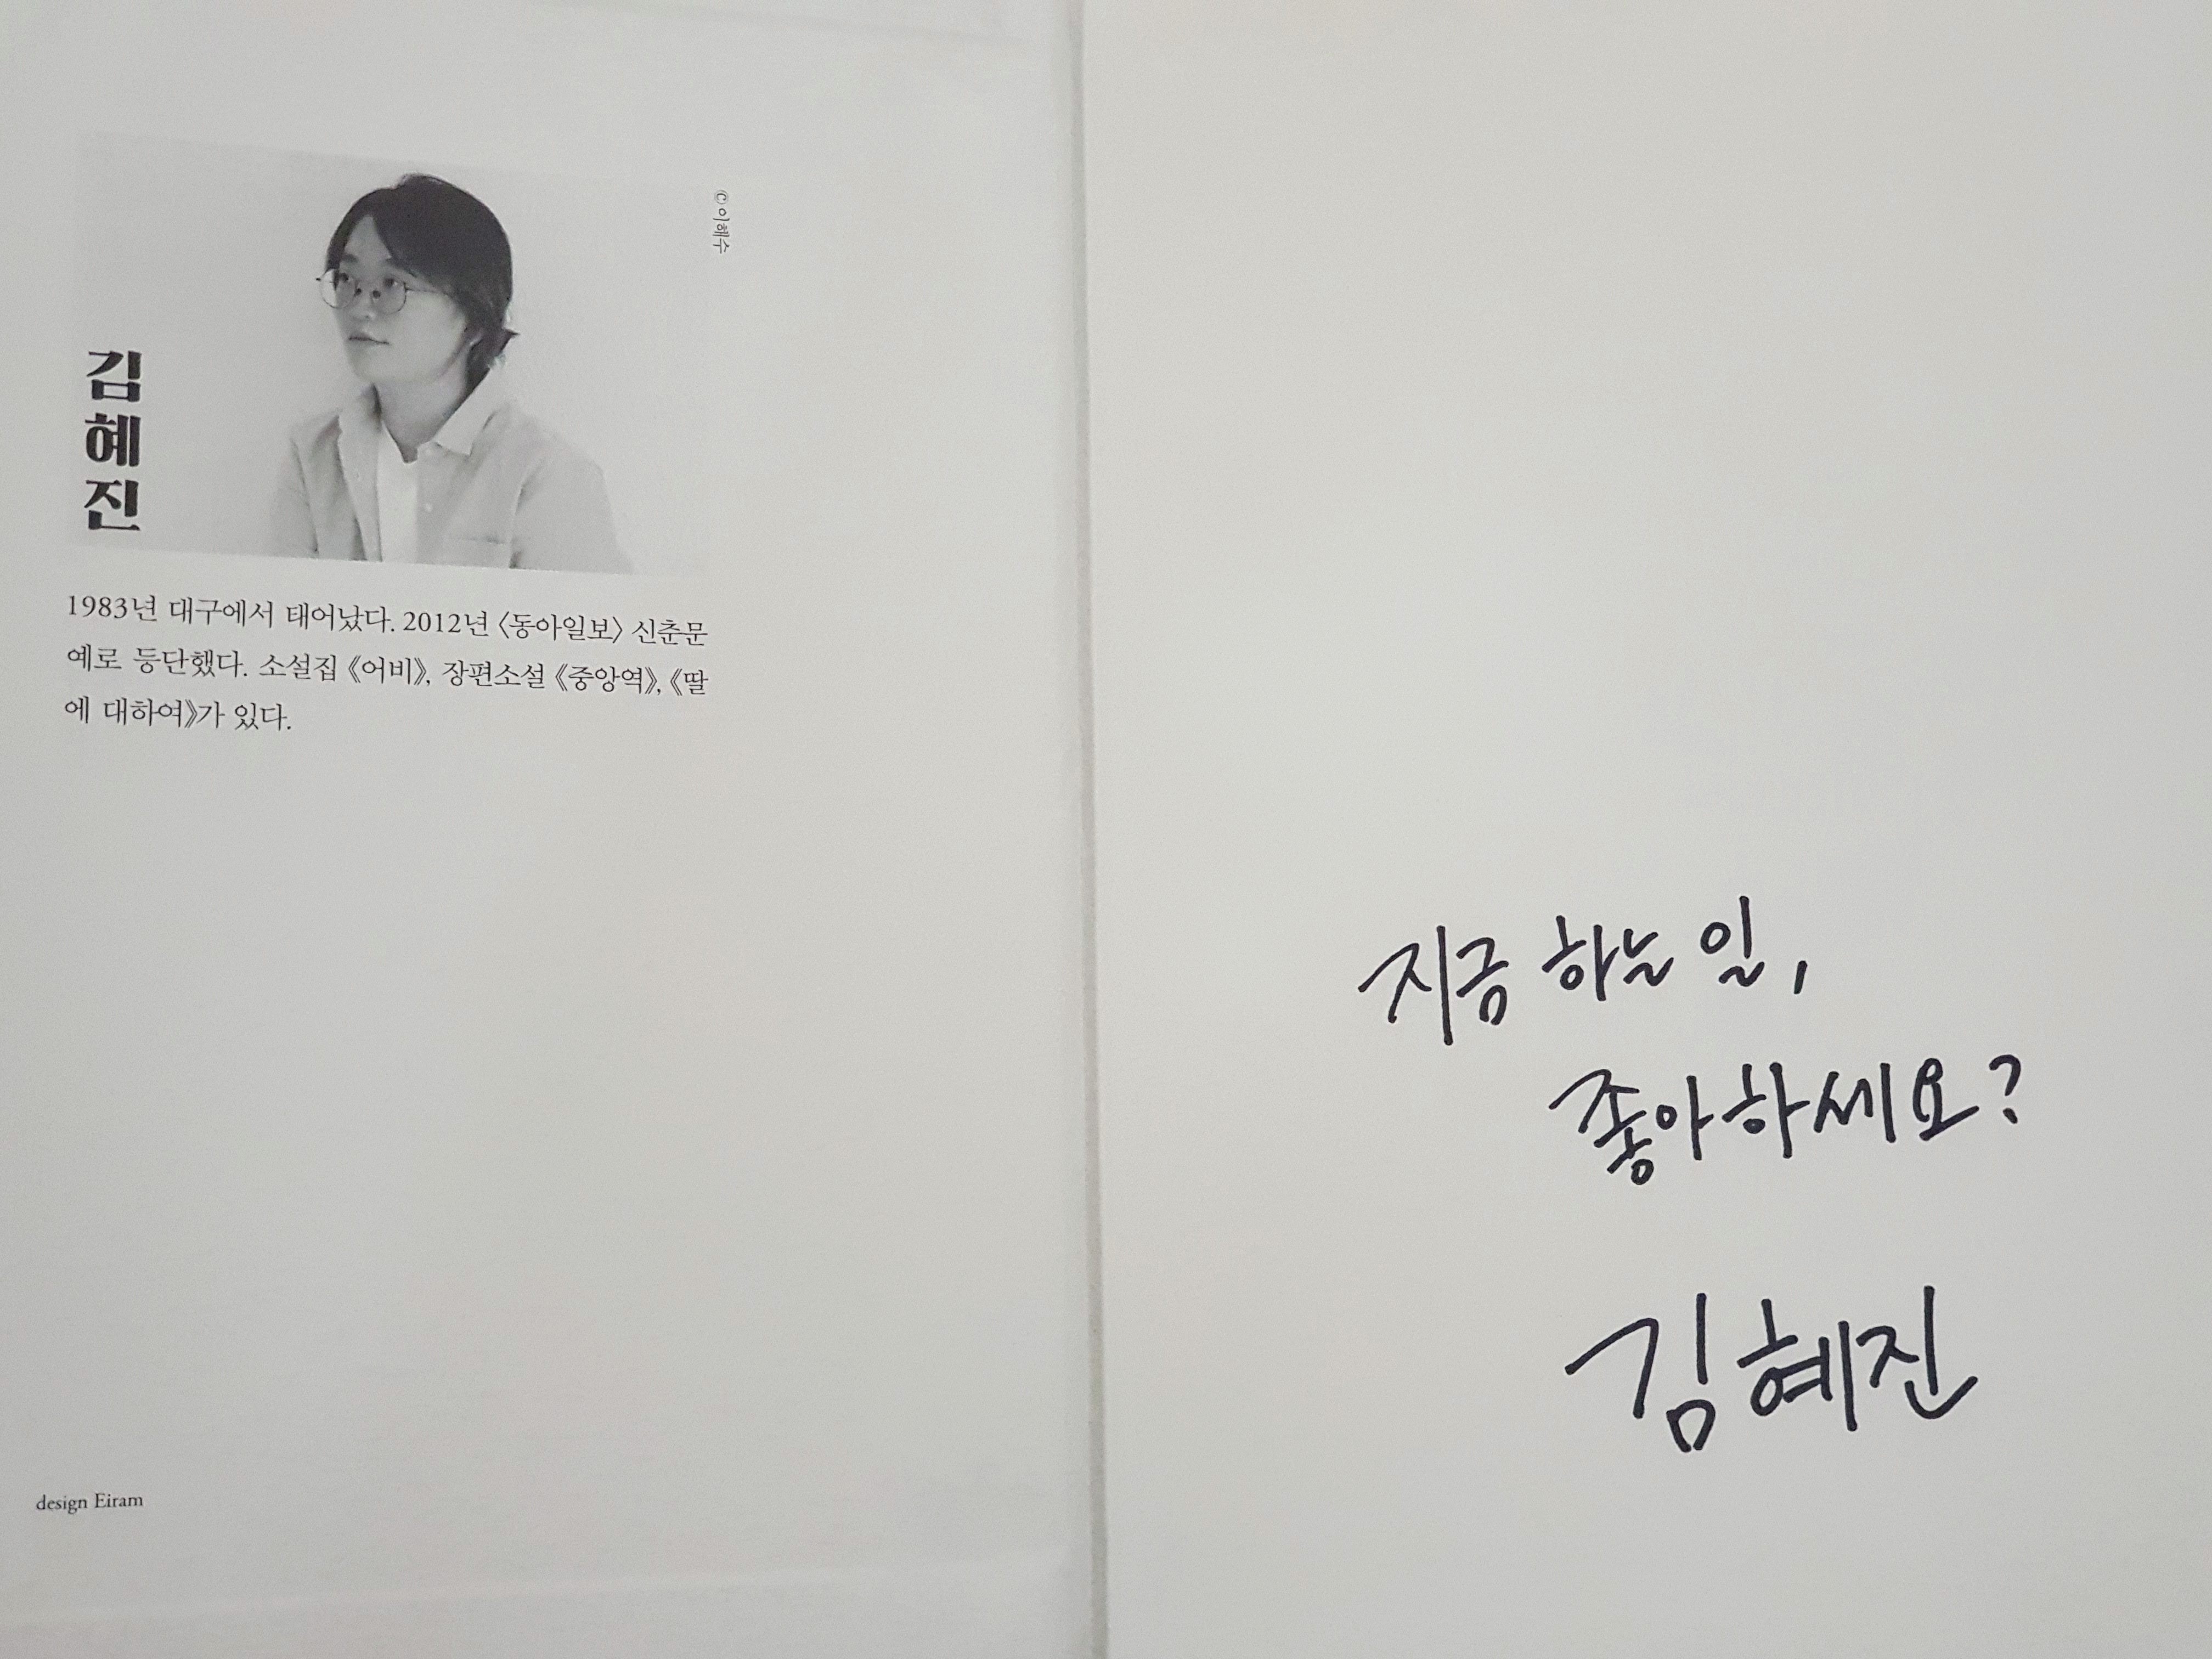 ⓒ이혜수
김혜진
1983년 대구에서 태어났다. 2012년 〈동아일보〉 신춘문
예로 등단했다. 소설집 《어비》, 장편소설 《중앙역》, 《딸
에 대하여》가 있다.
design Eiram
지금 하는 일,
좋아하세요?
김혜진